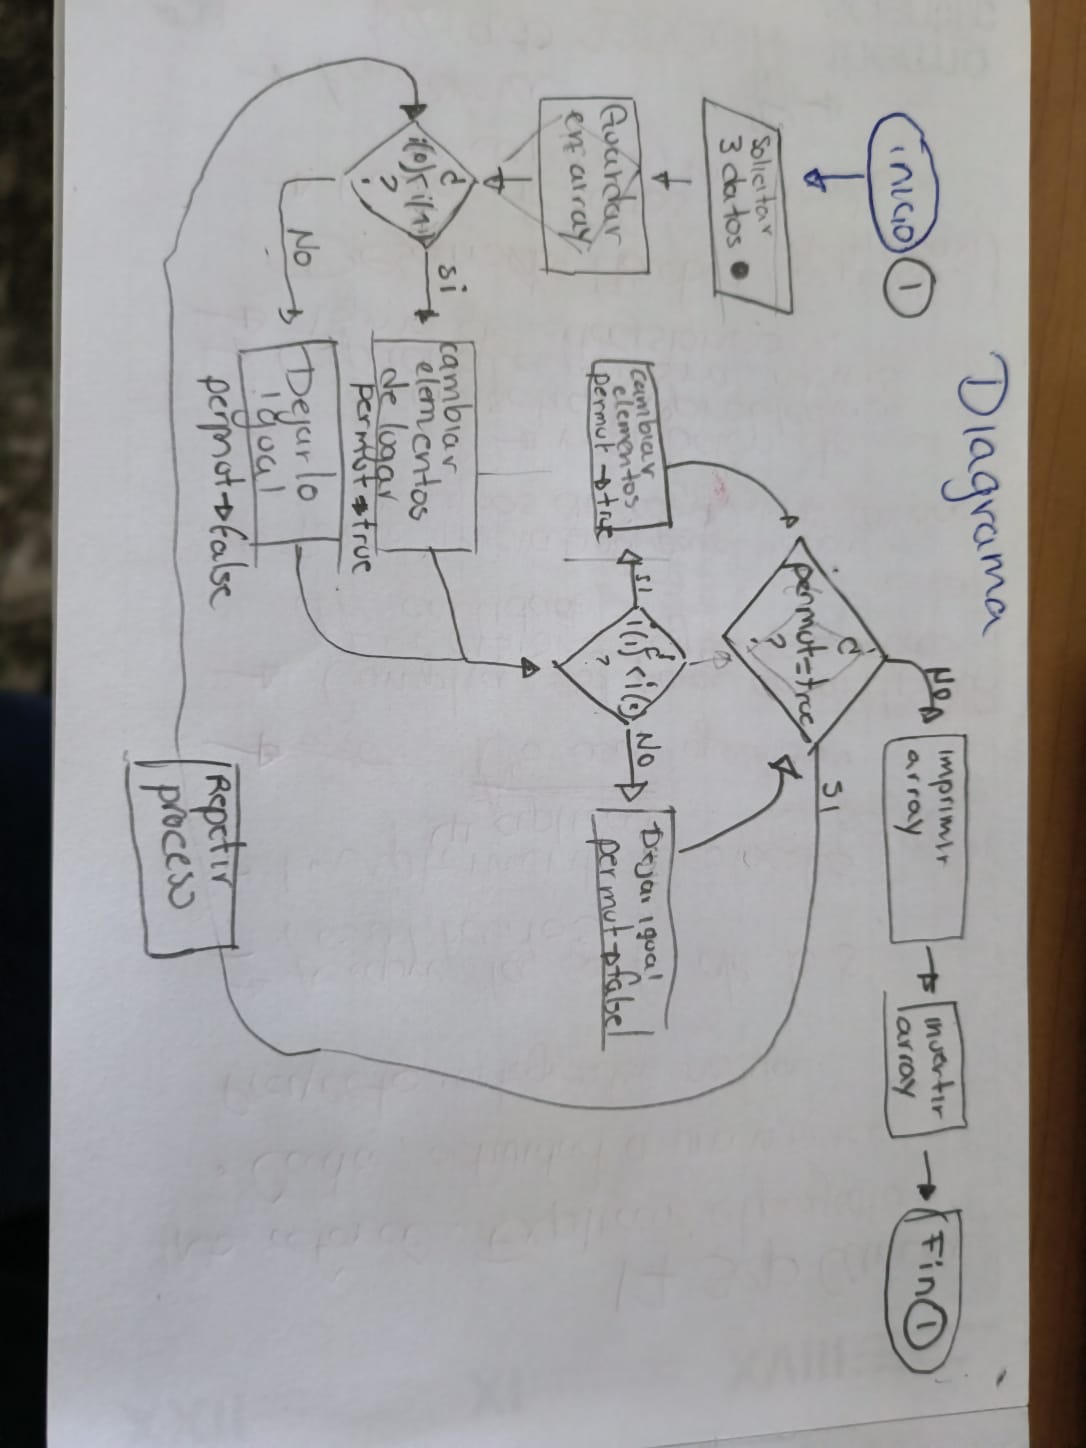 Diagrama
inicio 1
Solicitar
3 datos
Guardar
en array
¿
i(0)<i(1)
?
si
No
cambiar
elementos
de lugar
permut→true
Dejarlo
igual
permut→false
¿
i(1)<i(2)
?
si
No
cambiar
elementos
permut→true
Dejar igual
permut→false
¿
permut=true
?
No
si
imprimir
array
invertir
array
Fin 1
Repetir
proceso